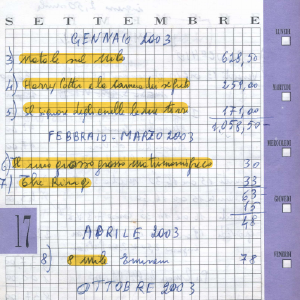 SETTEMBRE
GENNAIO 2003
3) Natale sul Nilo 628,50
4) Harry Potter e la camera dei segreti 259,00
5) Il signore degli anelli le due torri 171,00
1.058,50
FEBBRAIO-MARZO 2003
6) Il mio grosso grasso matrimonio greco 30
7) The Ring 33
63
15
48
17
APRILE 2003
8) 8 mile Eminem 78
OTTOBRE 2003
LUNEDÌ
MARTEDÌ
MERCOLEDÌ
GIOVEDÌ
VENERDÌ